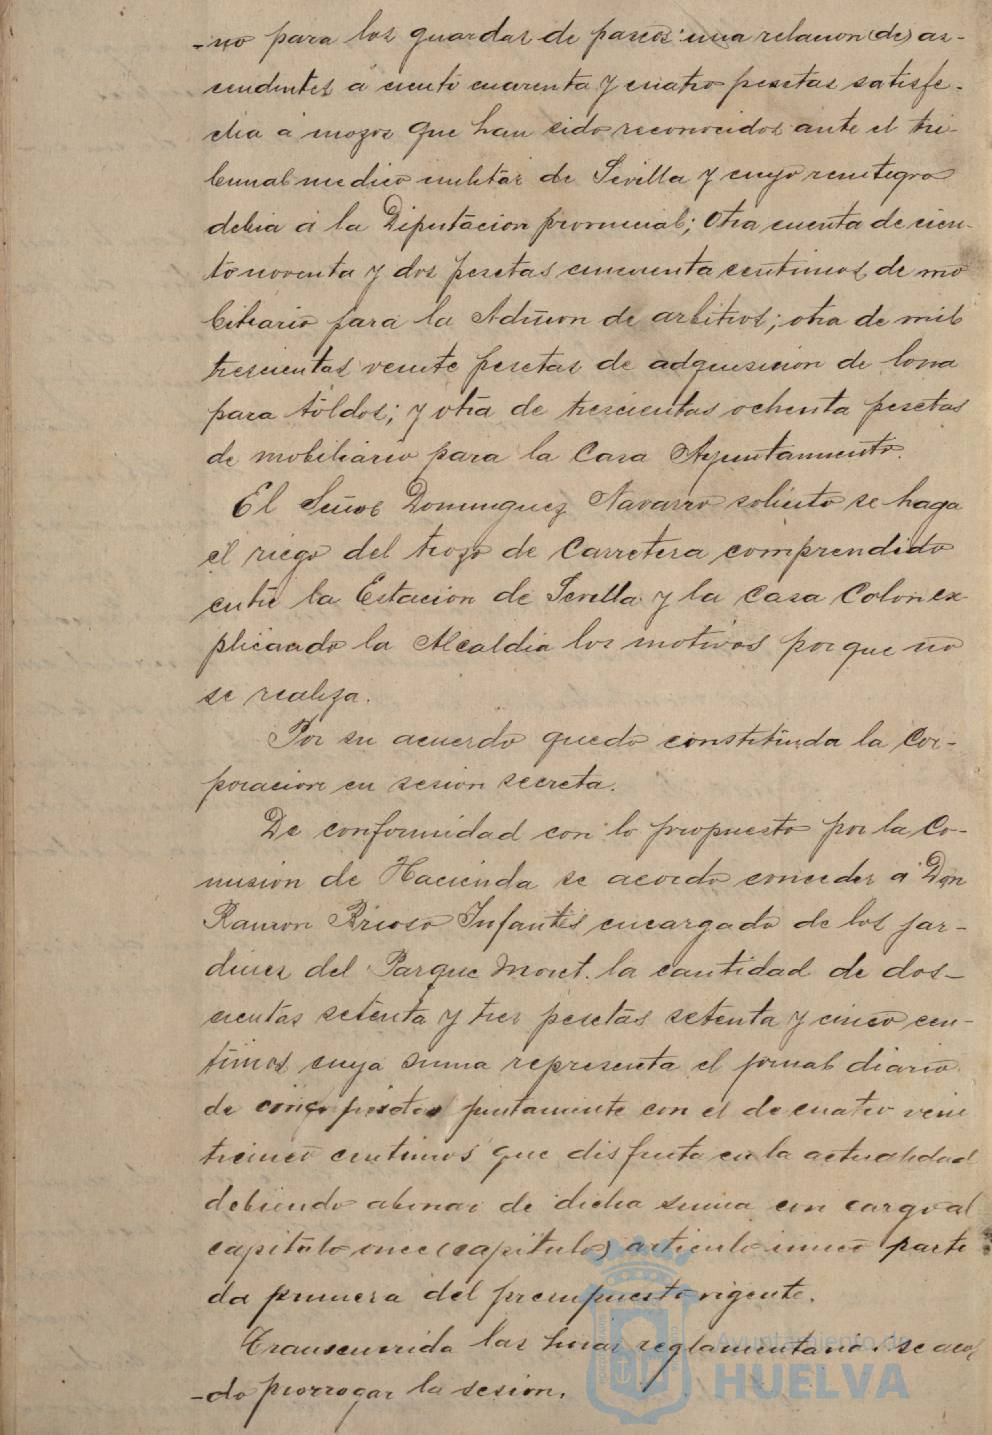 -no para los guardas de paseos; una relacion (de) as-
cendentes á ciento cuarenta y cuatro pesetas satisfe-
cha á mozos que han sido reconocidos ante el tri-
bunal medico militar de Sevilla y cuyo reintegro
debia á la Diputacion provincial; Otra cuenta de cien-
to noventa y dos pesetas cincuenta centimos de mo
biliario para la Admon de arbitrios; otra de mil
trescientas veinte pesetas de adquisicion de lona
para toldos; y otra de trescientas ochenta pesetas
de mobiliario para la Casa Ayuntamiento.
El Señor Dominguez Navarro solicito se haga
el riego del trozo de Carretera comprendido
entre la Estacion de Sevilla y la Casa Colon ex
plicando la Alcaldia los motivos por que no
se realiza.
Por su acuerdo quedo constituida la Cor-
poracion en sesion secreta.
De conformidad con lo propuesto por la Co-
mision de Hacienda se acordo conceder á Don
Ramon Rioso Infantes encargado de los jar-
dines del Parque Moret. la cantidad de dos-
cientas setenta y tres pesetas setenta y cinco cen-
timos cuya suma representa el jornal diario
de cinco pesetas juntamente con el de cuatro vein
ticinco centimos que disfruta en la actualidad
debiendo abonar de dicha suma con cargo al
capitulo once (capitulo) articulo unico parti
da primera del presupuesto vigente.
Transcurrida las horas reglamentaria se acor
-do prorrogar la sesion.
Ayuntamiento de
HUELVA